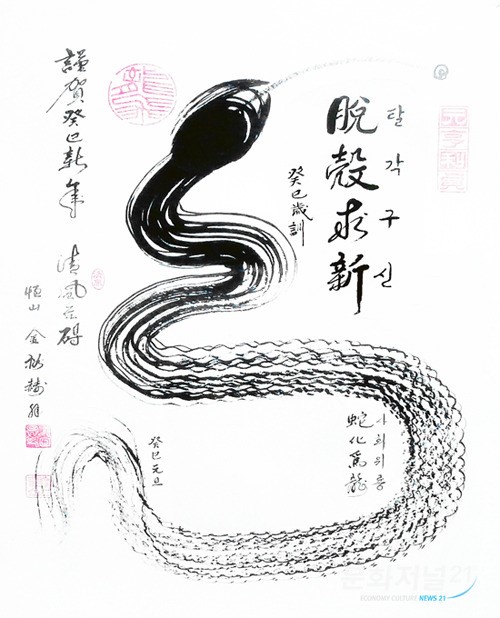 탈각구신
脫殼求新
癸巳歲訓
蛇化爲龍
癸巳元旦
謹賀癸巳新年
清風
恒山 金
元亨利貞
문화저널21
ECONOMY CULTURE NEWS 21